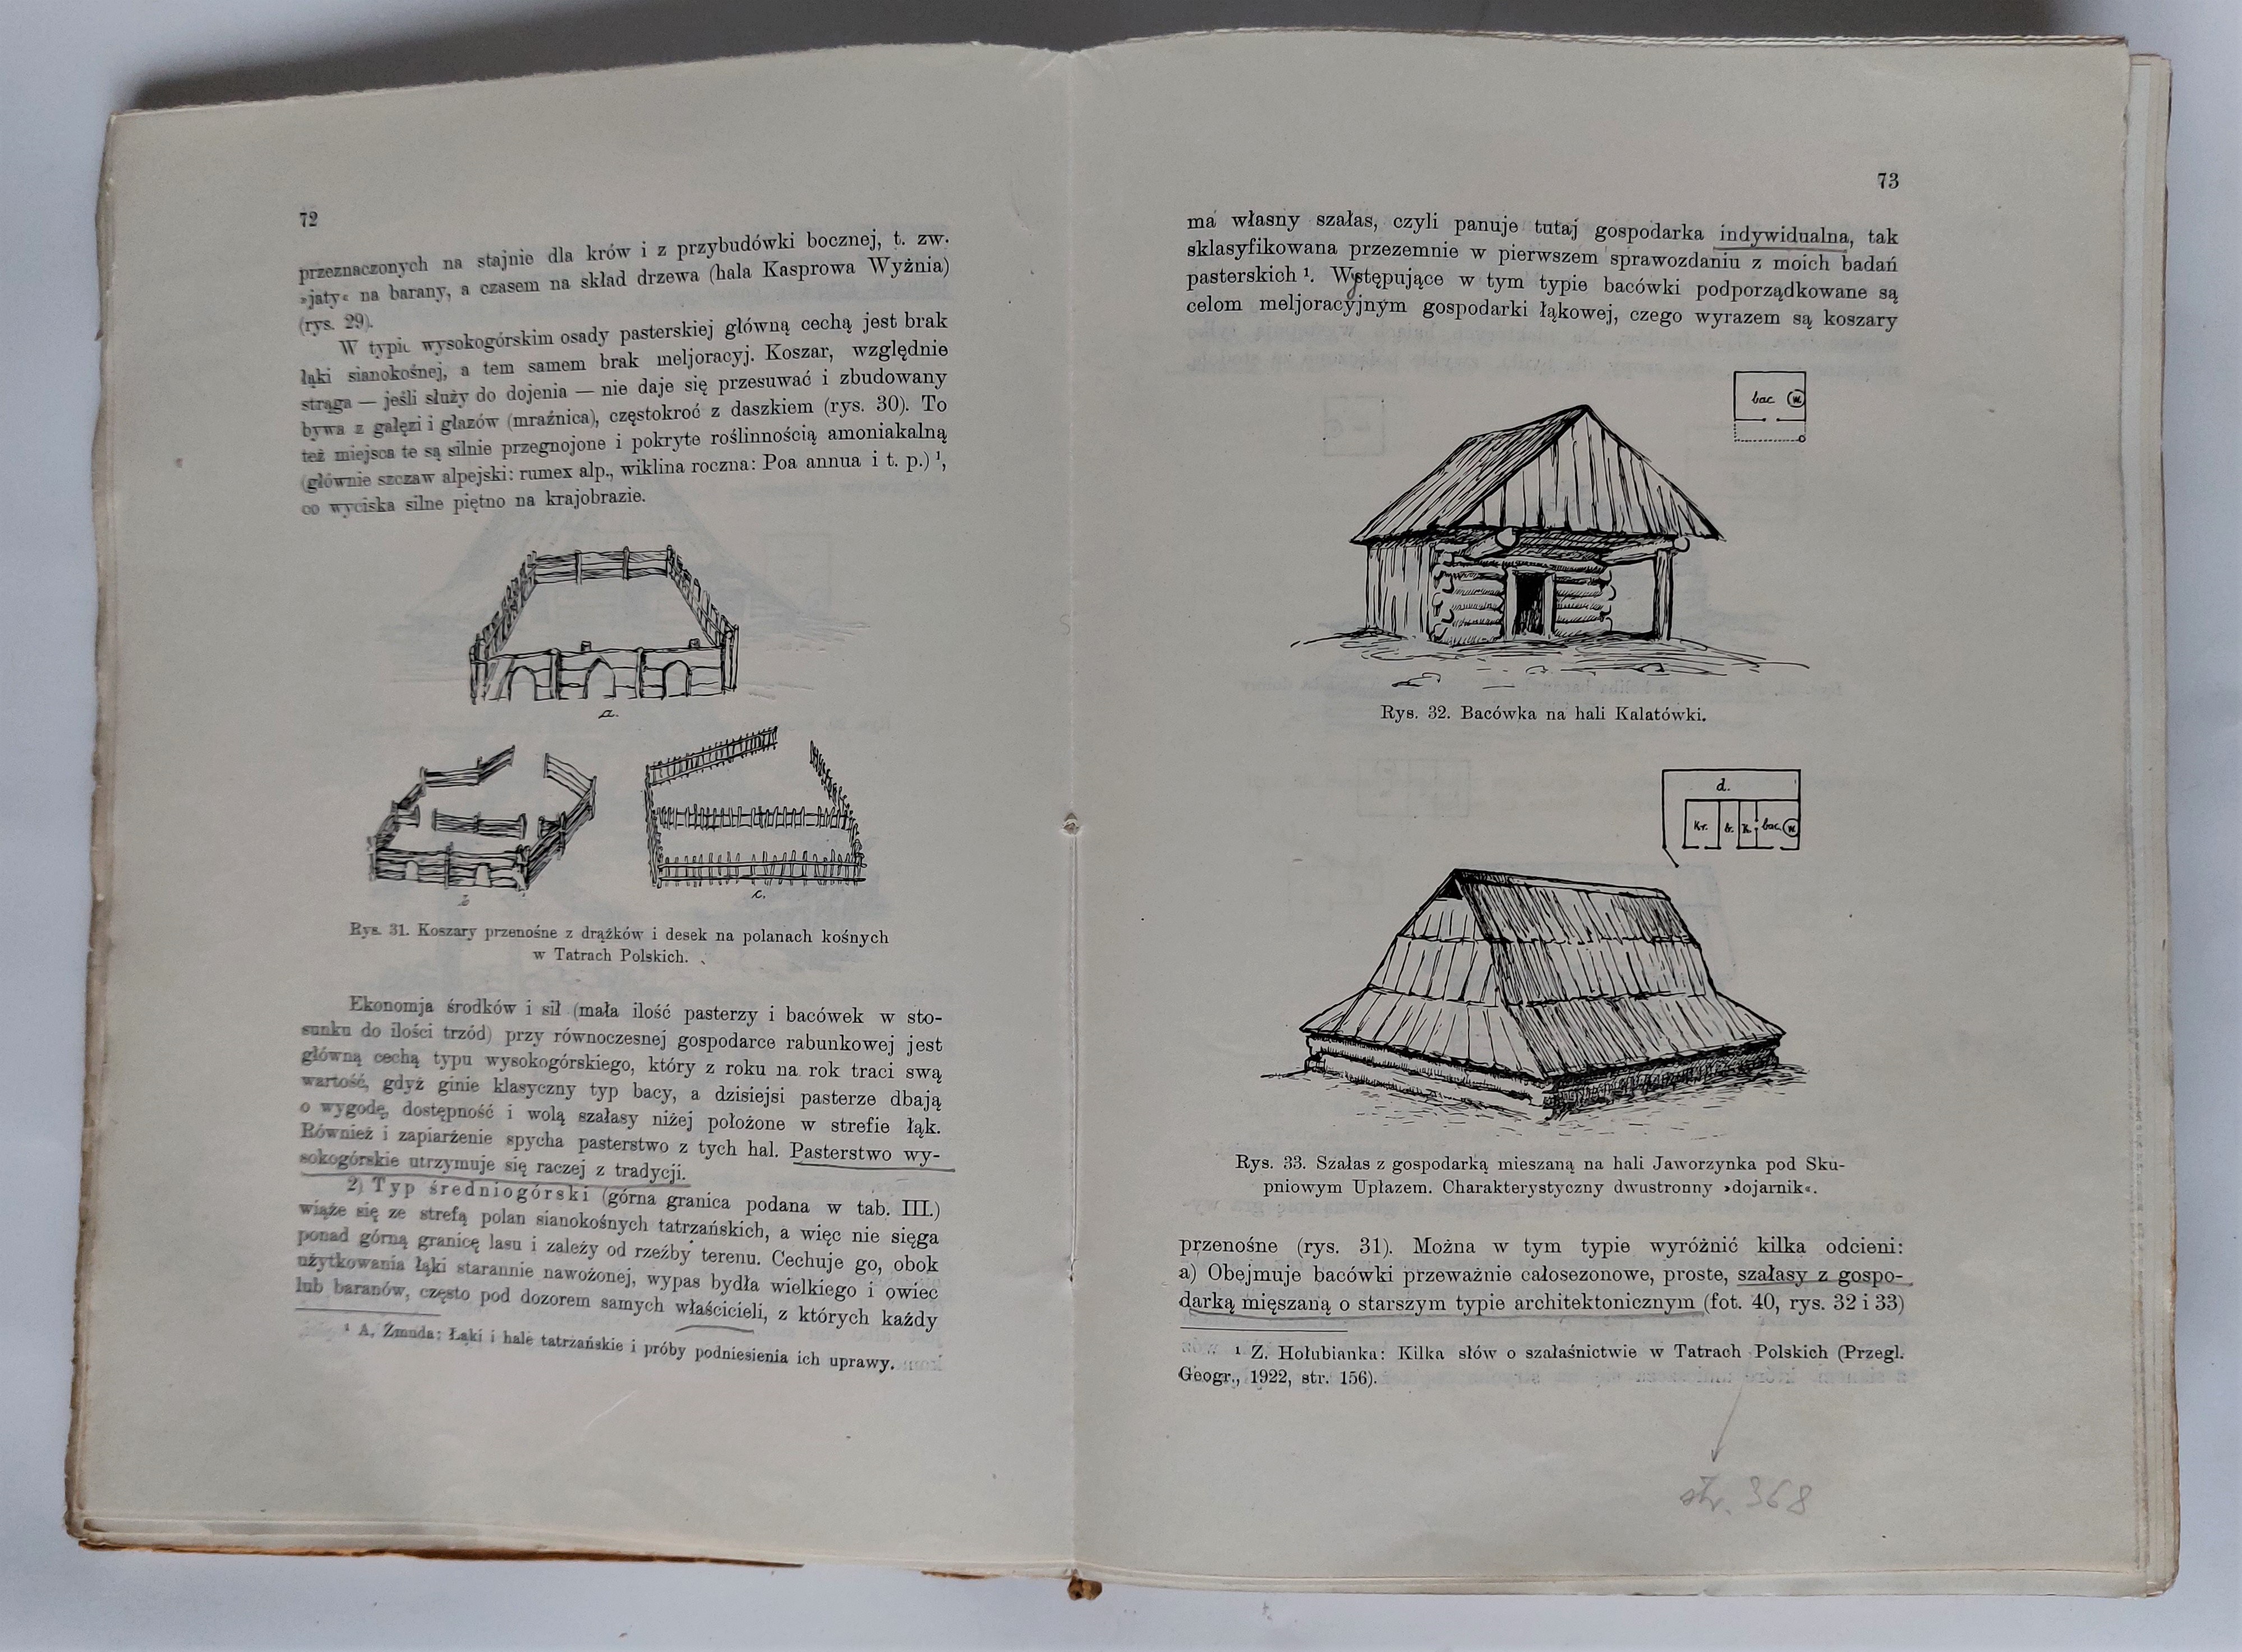 72
przeznaczonych na stajnie dla krów i z przybudówki bocznej, t. zw.
»jaty« na barany, a czasem na skład drzewa (hala Kasprowa Wyżnia)
(rys. 29).
W typie wysokogórskim osady pasterskiej główną cechą jest brak
łąki sianokośnej, a tem samem brak meljoracyj. Koszar, względnie
strąga — jeśli służy do dojenia — nie daje się przesuwać i zbudowany
bywa z gałęzi i głazów (mraźnica), częstokroć z daszkiem (rys. 30). To
też miejsca te są silnie przegnojone i pokryte roślinnością amoniakalną
(głównie szczaw alpejski: rumex alp., wiklina roczna: Poa annua i t. p.) ¹,
co wyciska silne piętno na krajobrazie.
a.
b
c.
Rys. 31. Koszary przenośne z drążków i desek na polanach kośnych
w Tatrach Polskich.
Ekonomja środków i sił (mała ilość pasterzy i bacówek w sto-
sunku do ilości trzód) przy równoczesnej gospodarce rabunkowej jest
główną cechą typu wysokogórskiego, który z roku na rok traci swą
wartość, gdyż ginie klasyczny typ bacy, a dzisiejsi pasterze dbają
o wygodę, dostępność i wolą szałasy niżej położone w strefie łąk.
Również i zapiarżenie spycha pasterstwo z tych hal. Pasterstwo wy-
sokogórskie utrzymuje się raczej z tradycji.
2) Typ średniogórski (górna granica podana w tab. III.)
wiąże się ze strefą polan sianokośnych tatrzańskich, a więc nie sięga
ponad górną granicę lasu i zależy od rzeźby terenu. Cechuje go, obok
użytkowania łąki starannie nawożonej, wypas bydła wielkiego i owiec
lub baranów, często pod dozorem samych właścicieli, z których każdy
¹ A. Żmuda: Łąki i hale tatrzańskie i próby podniesienia ich uprawy.
73
ma własny szałas, czyli panuje tutaj gospodarka indywidualna, tak
sklasyfikowana przezemnie w pierwszem sprawozdaniu z moich badań
pasterskich ¹. Występujące w tym typie bacówki podporządkowane są
celom meljoracyjnym gospodarki łąkowej, czego wyrazem są koszary
bac. w.
Rys. 32. Bacówka na hali Kalatówki.
d.
kr. k. bac. w.
Rys. 33. Szałas z gospodarką mieszaną na hali Jaworzynka pod Sku-
pniowym Upłazem. Charakterystyczny dwustronny »dojarnik«.
przenośne (rys. 31). Można w tym typie wyróżnić kilka odcieni:
a) Obejmuje bacówki przeważnie całosezonowe, proste, szałasy z gospo-
darką mięszaną o starszym typie architektonicznym (fot. 40, rys. 32 i 33)
¹ Z. Hołubianka: Kilka słów o szałaśnictwie w Tatrach Polskich (Przegl.
Geogr., 1922, str. 156).
str. 368